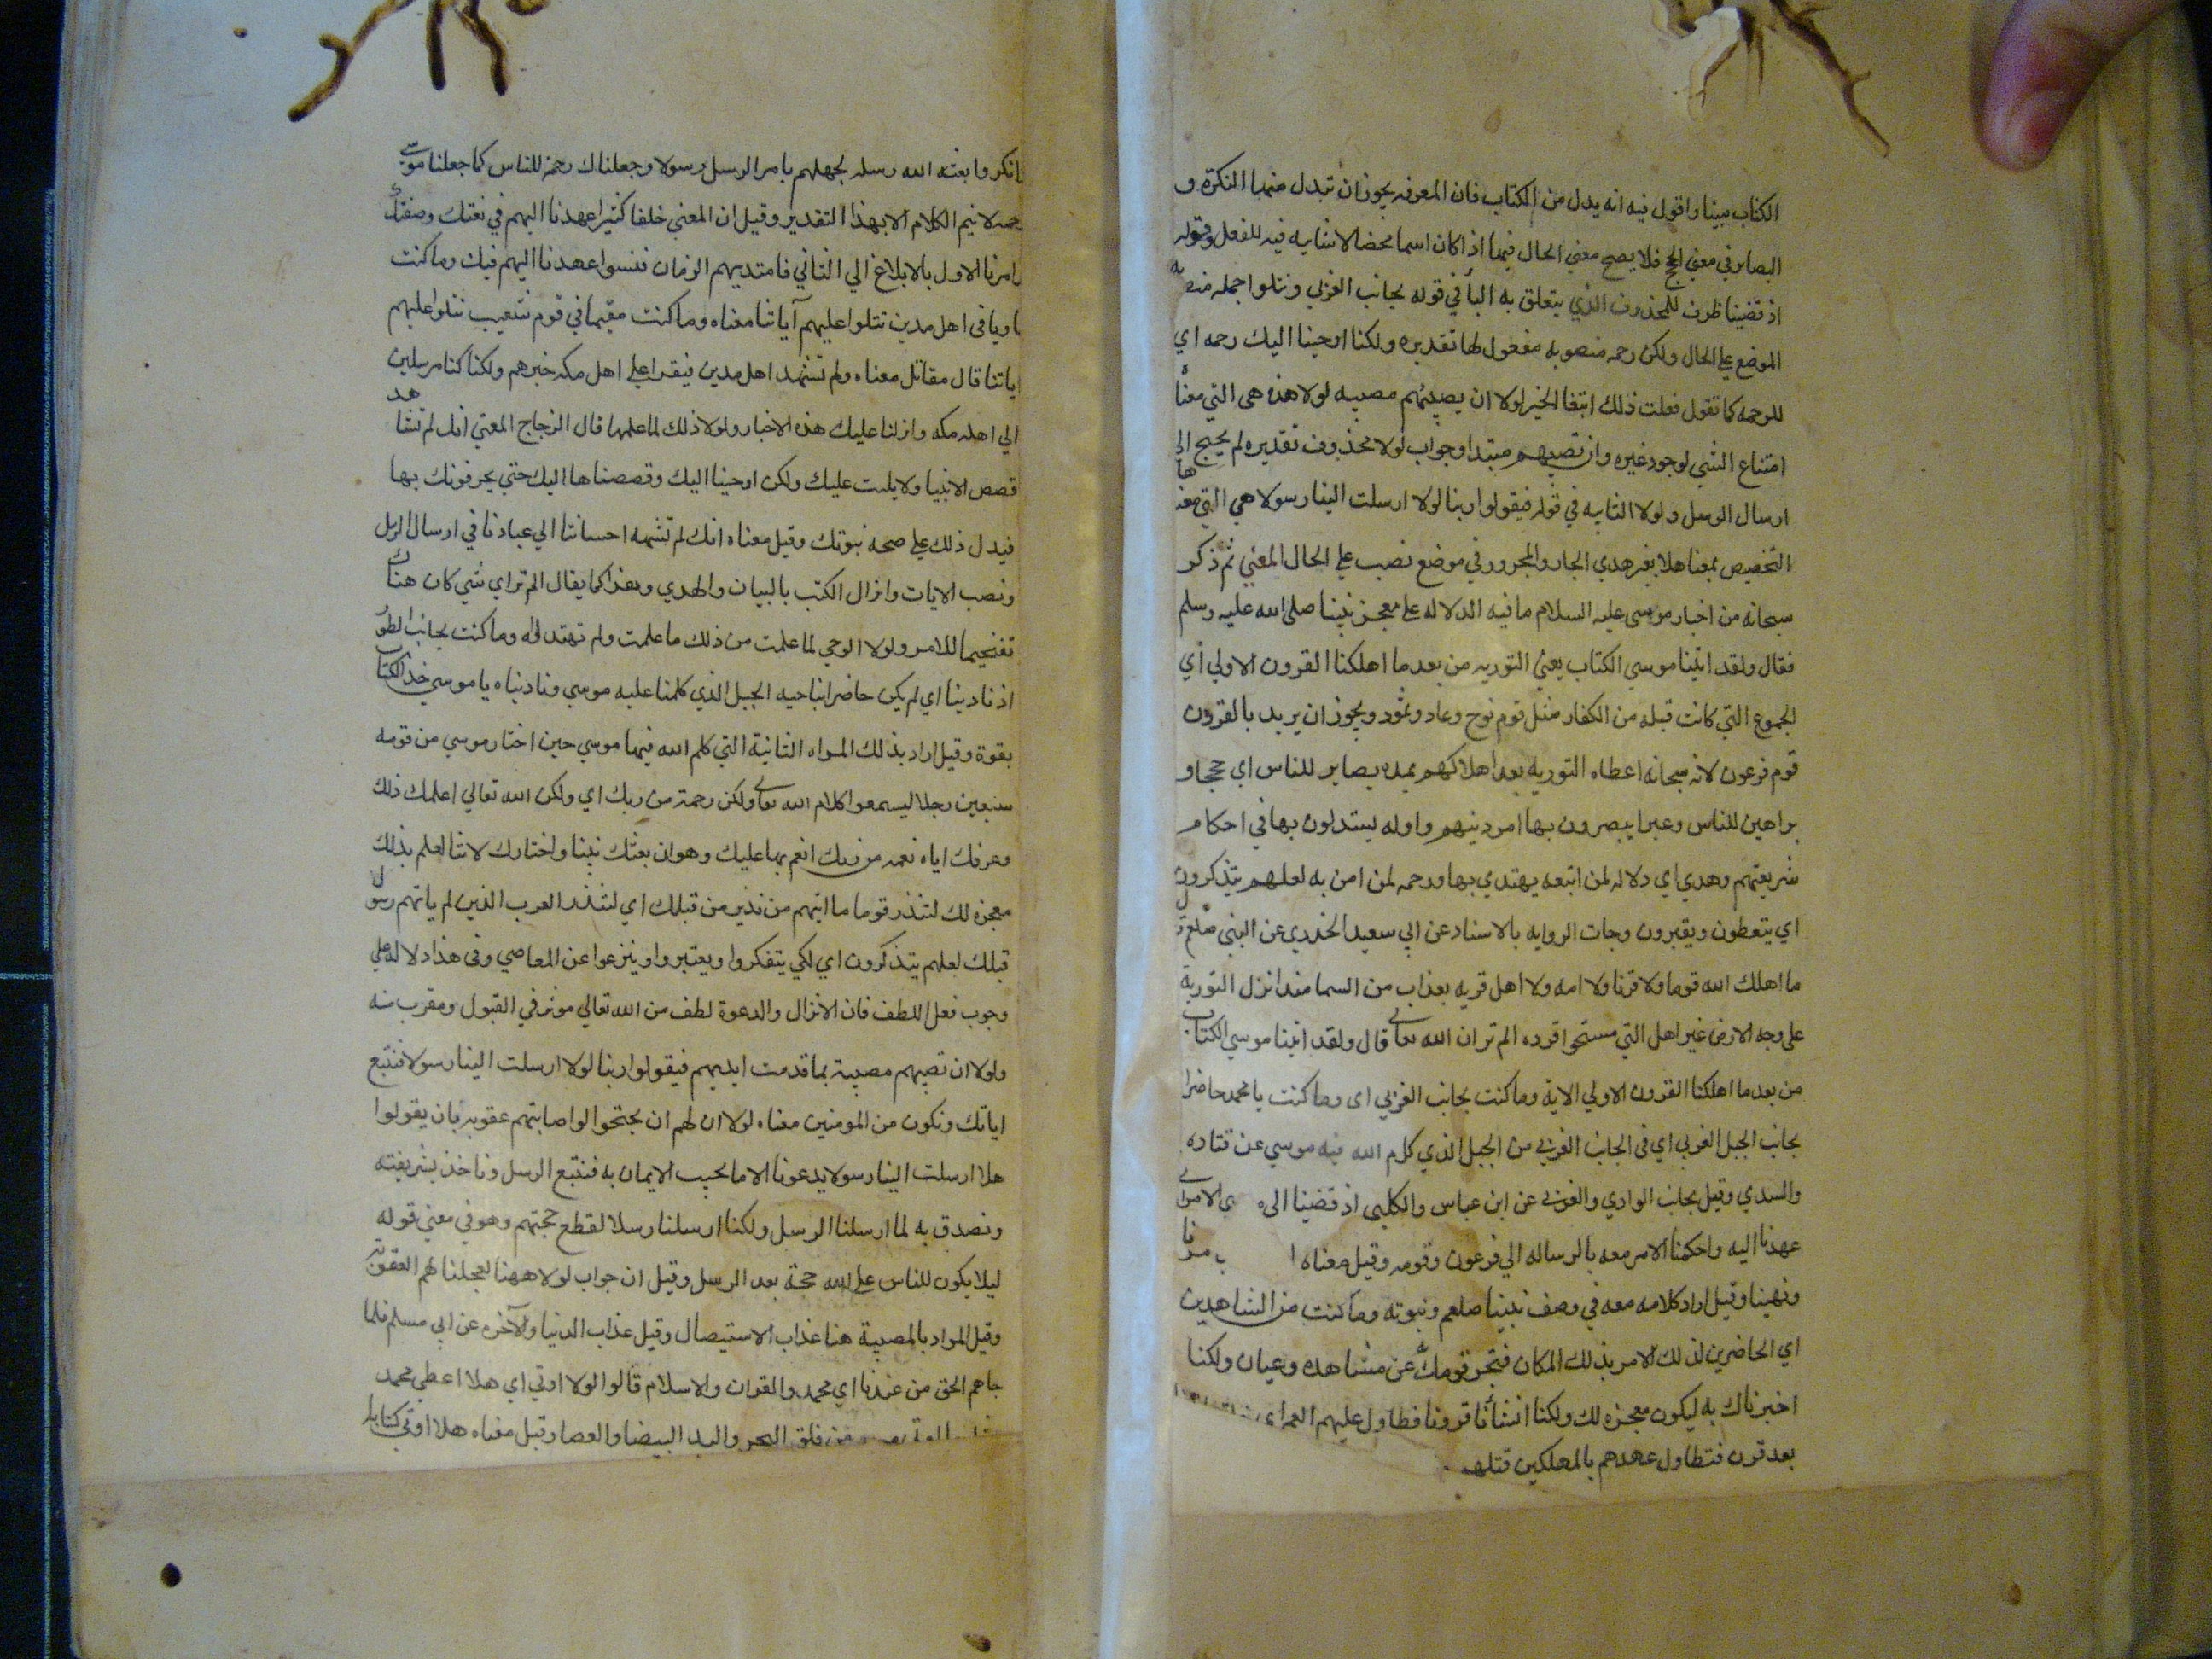 الكتاب مبينا واقول فيه انه يدل من الكتاب فان المعرفه يجوز ان تبدل منها النكرة و
البصاير في معني الحج فلا يصح معني الحال فيها اذا كان اسما محضا لا شايبه فيه للفعل وقوله
اذ قضينا ظرف للمحذوف الذي يتعلق به البا في قوله بجانب الغربي ونتلوا جمله منصوبه
الموضع علي الحال ولكن رحمه منصوبه مفعول لها تقديره ولكنا اوحينا اليك رحمه اي
للرحمه كما تقول فعلت ذلك ابتغا الخير لولا ان يصيبهم مصيبه لولا هذه هي التي معنا
امتناع الشي لوجود غيره وان تصيبهم مبتدا وجواب لولا محذوف تقديره لم يحتج الي
ارسال الرسل ولولا الثانيه في قوله فيقولوا ربنا لولا ارسلت الينا رسولا هي التي معناها
التخصيص بمعنا هلا بغير هدي الجار والمجرور في موضع نصب علي الحال المعني ثم ذكر
سبحانه من اخبار موسي عليه السلام ما فيه الدلاله علي معجز نبينا صلي الله عليه وسلم
فقال ولقد اتينا موسي الكتاب يعني التوريه من بعد ما اهلكنا القرون الاولي اي
الجموع التي كانت قبله من الكفار مثل قوم نوح وعاد وثمود ويجوز ان يريد بالقرون
قوم فرعون لانه سبحانه اعطاه التوريه بعد اهلاكهم بمده بصاير للناس اي حججا و
براهين للناس وعبرا يبصرون بها امر دينهم وادله يستدلون بها في احكام
شريعتهم وهدي اي دلاله لمن اتبعه يهتدي بها ورحمه لمن امن به لعلهم يتذكرون
اي يتعظون ويعتبرون وجات الروايه بالاسناد عن ابي سعيد الخدري عن النبي صلعم قال
ما اهلك الله قوما ولا قرنا ولا امه ولا اهل قريه بعذاب من السما منذ انزل التورية
علي وجه الارض غير اهل التي مسخوا قرده الم تر ان الله تعالي قال ولقد اتينا موسي الكتاب
من بعد ما اهلكنا القرون الاولي الاية وما كنت بجانب الغربي اي وما كنت يا محمد حاضرا
بجانب الجبل الغربي اي في الجانب الغربي من الجبل الذي كلم الله فيه موسي عن قتاده
والسدي وقيل بجانب الوادي والغربي عن ابن عباس والكلبي اذ قضينا الي الامر اي
عهدنا اليه واحكمنا الامر معه بالرساله الي فرعون وقومه وقيل معناه
ونهينا وقيل اراد كلامه معه في وصف نبينا صلعم ونبوته وما كنت من الشاهدين
اي الحاضرين لذلك الامر بذلك المكان فتخبر قومك عن مشاهده وعيان ولكنا
اخبرناك به ليكون معجزه لك ولكنا انشأنا قرونا فطاول عليهم العمر اي
بعد قرن فتطاول عهدهم بالمهلكين قبلهم
انكروا بعثه الله رسله بجهلهم بامر الرسل رسولا وجعلناك رحمة للناس كما جعلنا موسي
لانيم الكلام الا بهذا التقدير وقيل ان المعني خلقا كثيرا عهدنا اليهم في نعتك وصفتك
امرنا الاول بالابلاغ الي الثاني فامتد بهم الزمان فنسوا عهدنا اليهم فيك وما كنت
ثاويا في اهل مدين تتلوا عليهم آياتنا معناه وما كنت مقيما في قوم شعيب تتلوا عليهم
اياتنا قال مقاتل معناه ولم تشهد اهل مدين فيقرا علي اهل مكه خبرهم ولكنا كنا مرسلين
الي اهل مكه وانزلنا عليك هذه الاخبار ولولا ذلك لما علمها قال الزجاج المعني انك لم تشاهد
قصص الانبيا ولا تليت عليك ولكن اوحينا اليك وقصصناها اليك حتي يعرفونك بها
فيدل ذلك علي صحه نبوتك وقيل معناه انك لم تشهد احساننا الي عبادنا في ارسال الرسل
ونصب الايات وانزال الكتب بالبيان والهدي وهذا كما يقال الم تر اي شي كان هناك
تفخيما للامر ولولا الوحي لما علمت من ذلك ما علمت ولم تهتد له وما كنت بجانب الطور
اذ نادينا اي لم يكن حاضرا بناحيه الجبل الذي كلمنا عليه موسي وناديناه يا موسي خذ الكتاب
بقوة وقيل اراد بذلك المراه الثانية التي كلم الله فيها موسي حين اختار موسي من قومه
سبعين رجلا ليسمعوا كلام الله تعالي ولكن رحمة من ربك اي ولكن الله تعالي اعلمك ذلك
وعرفك اياه نعمه من ربك انعم بها عليك وهو ان بعثك نبينا واختارك لاتيا لعلم بذلك
معجزه لك لتنذر قوما ما اتيهم من نذير من قبلك اي لتنذر العرب الذين لم ياتهم رسول
قبلك لعلهم يتذكرون اي لكي يتفكروا ويعتبروا وينزعوا عن المعاصي وفي هذا دلاله علي
وجوب فعل اللطف فان الانزال والدعوة لطف من الله تعالي موثر في القبول ومقرب منه
ولولا ان تصيبهم مصيبة بما قدمت ايديهم فيقولوا ربنا لولا ارسلت الينا رسولا فنتبع
اياتك ونكون من المومنين معناه لولا ان لهم ان يحتجوا لو اصابتهم عقوبه بان يقولوا
هلا ارسلت الينا رسولا يدعونا الا ما يجب الايمان به فنتبع الرسل وناخذ بشريعته
ونصدق به لما ارسلنا الرسل ولكنا ارسلنا رسلا لقطع حجتهم وهو في معني قوله
ليلا يكون للناس علي الله حجة بعد الرسل وقيل ان جواب لولا ههنا لعجلنا لهم العقوبة
وقيل المراد بالمصيبة هنا عذاب الاستيصال وقيل عذاب الدنيا والآخره عن ابي مسلم فلما
جاهم الحق من عندنا اي محمد والقران والاسلام قالوا لولا اوتي اي هلا اعطي محمد
من فلق البحر واليد البيضا والعصا وقيل معناه هلا اوتي كتابا